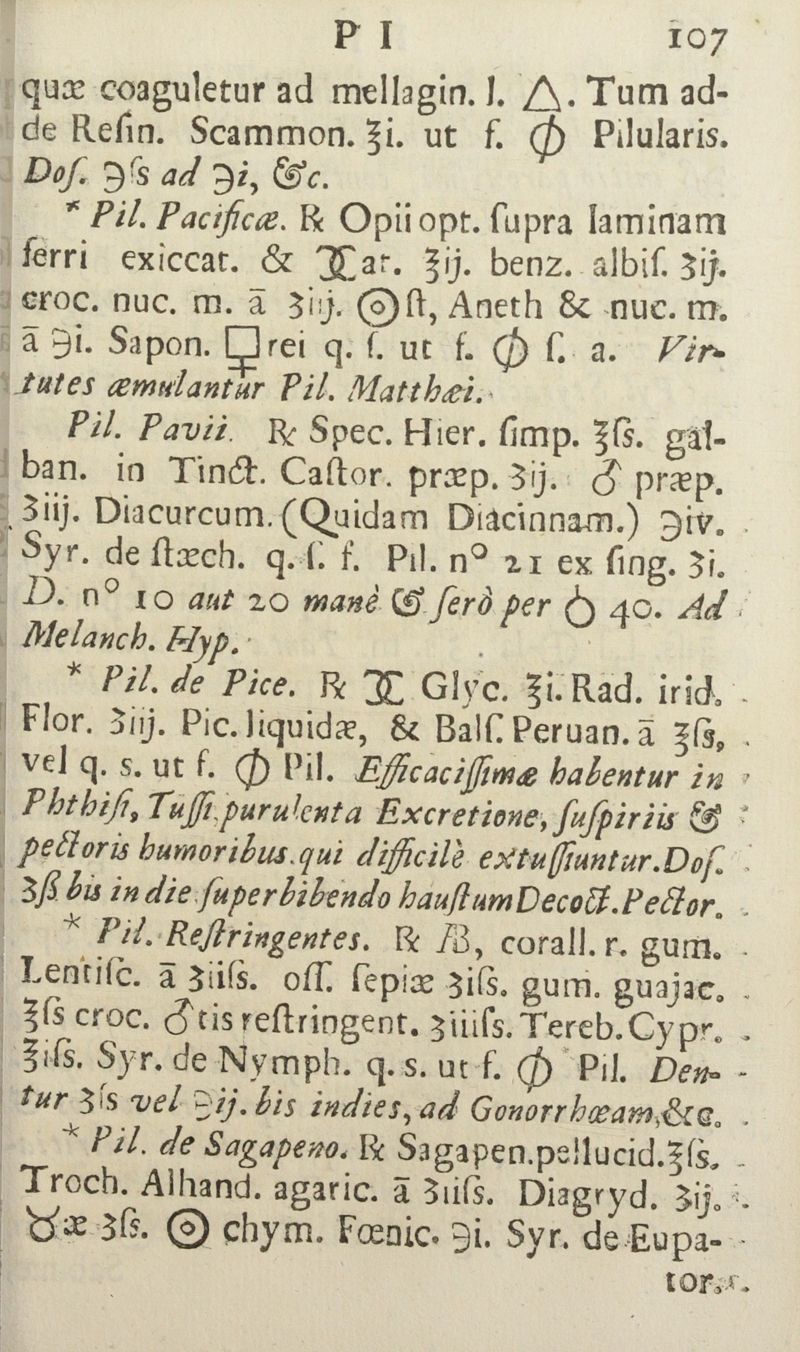 P I 107
quæ coaguletur ad mellagin. l. 🜂. Tum ad-
de Reſin. Scammon. ℥i. ut f. ф Pilularis.
Doſ. ℈ſs ad ℈i, &c.
* Pil. Pacificæ. ℞ Opii opt. ſupra laminam
ferri exiccat. & ♓ar. ℥ij. benz. albiſ. ʒij.
croc. nuc. m. ā ʒiij. ☉ſt, Aneth & nuc. m.
ā ℈i. Sapon. 🜿rei q. ſ. ut f. ф ſ. a. Vir-
tutes æmulantur Pil. Matthæi.
Pil. Pavii. ℞ Spec. Hier. ſimp. ℥ſs. gal-
ban. in Tinct. Caſtor. præp. ʒij. ♂ præp.
ʒiij. Diacurcum. (Quidam Diacinnam.) ℈iv.
Syr. de ſtæch. q. ſ. f. Pil. nº 21 ex ſing. ʒi.
D. nº 10 aut 20 manè & ſerò per ò 40. Ad
Melanch. Hyp.
* Pil. de Pice. ℞ ♓ Glyc. ℥i. Rad. irid.
Flor. ʒiij. Pic. liquidæ, & Balſ. Peruan. ā ℥ſs,
vel q. s. ut f. ф Pil. Efficaciſſimæ habentur in
Phthiſi, Tuſſi purulenta Excretione, ſuſpiriis &
pectoris humoribus qui difficilè extuſſiuntur. Doſ.
ʒß bis in die ſuperbibendo hauſtum Decoct. Pector.
* Pil. Reſtringentes. ℞ /B, corall. r. gum.
Lentiſc. ā ʒiiſs. oſſ. ſepiæ ʒiſs. gum. guajac.
℥ſs croc. ♂tis reſtringent. ʒiiiſs. Tereb. Cypr.
℥iſs. Syr. de Nymph. q. s. ut f. ф Pil. Den-
tur ʒſs vel ℈ij. bis indies, ad Gonorrhœam, &c.
* Pil. de Sagapeno. ℞ Sagapen. pellucid. ℥ſs.
Troch. Alhand. agaric. ā ʒiiſs. Diagryd. ʒij.
♉æ ʒſs. ☉ chym. Fœnic. ℈i. Syr. de Eupa-
tor.